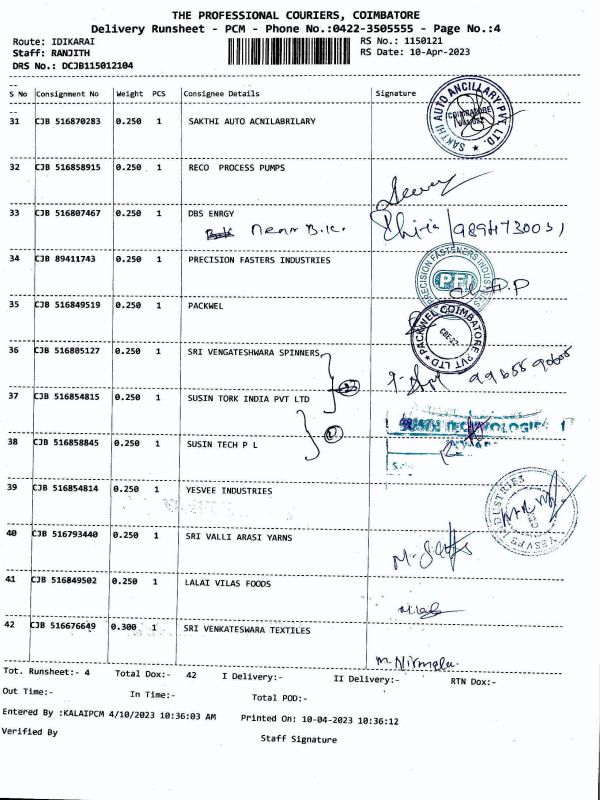 THE PROFESSIONAL COURIERS, COIMBATORE
Delivery Runsheet - PCM - Phone No.:0422-3505555 - Page No.:4
Route: IDIKARAI
RS No.: 1150121
Staff: RANJITH
RS Date: 10-Apr-2023
DRS No.: DCJB115012104
S No Consignment No Weight PCS Consignee Details Signature
31 CJB 516870283 0.250 1 SAKTHI AUTO ACNILABRILARY
SAKTHI AUTO ANCILLARY PVT. LTD.
COIMBATORE
32 CJB 516858915 0.250 1 RECO PROCESS PUMPS
33 CJB 516807467 0.250 1 DBS ENRGY
Near B.K.
34 CJB 89411743 0.250 1 PRECISION FASTERS INDUSTRIES
PRECISION FASTENERS INDUSTRIES
PFI
35 CJB 516849519 0.250 1 PACKWEL
PACKWEL COIMBATORE PVT LTD
36 CJB 516805127 0.250 1 SRI VENGATESHWARA SPINNERS
37 CJB 516854815 0.250 1 SUSIN TORK INDIA PVT LTD
SUSIN TECHNOLOGIES
38 CJB 516858845 0.250 1 SUSIN TECH P L
39 CJB 516854814 0.250 1 YESVEE INDUSTRIES
YESVEE INDUSTRIES
40 CJB 516793440 0.250 1 SRI VALLI ARASI YARNS
41 CJB 516849502 0.250 1 LALAI VILAS FOODS
42 CJB 516676649 0.300 1 SRI VENKATESWARA TEXTILES
M. Nirmala
Tot. Runsheet:- 4 Total Dox:- 42 I Delivery:- II Delivery:- RTN Dox:-
Out Time:- In Time:- Total POD:-
Entered By :KALAIPCM 4/10/2023 10:36:03 AM Printed On: 10-04-2023 10:36:12
Verified By
Staff Signature